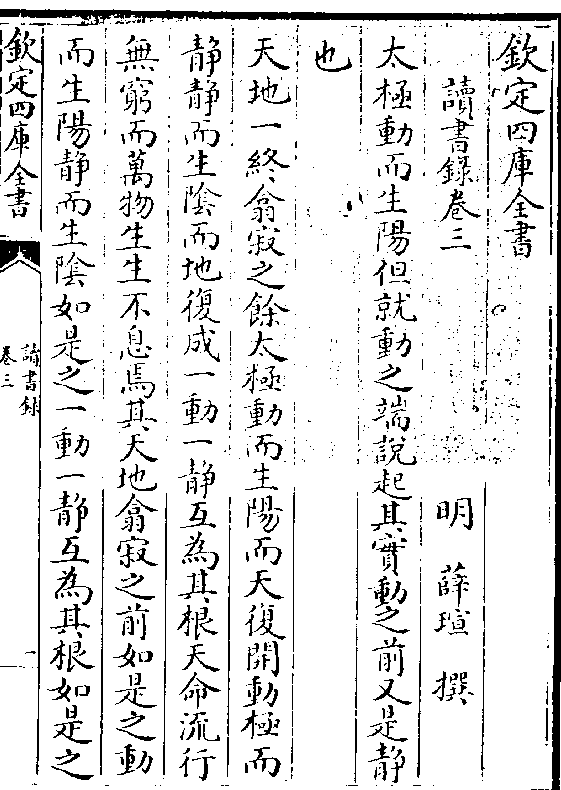 欽定四庫全書
讀書錄卷三
明 薛瑄 撰
太極動而生陽但就動之端說起其實動之前又是静
也
天地一終翕寂之餘太極動而生陽而天復開動極而
静静而生陰而地復成一動一静互為其根天命流行
無窮而萬物生生不息焉其天地翕寂之前如是之動
而生陽静而生陰如是之一動一静互為其根如是之
欽定四庫全書
讀書錄
卷三
一